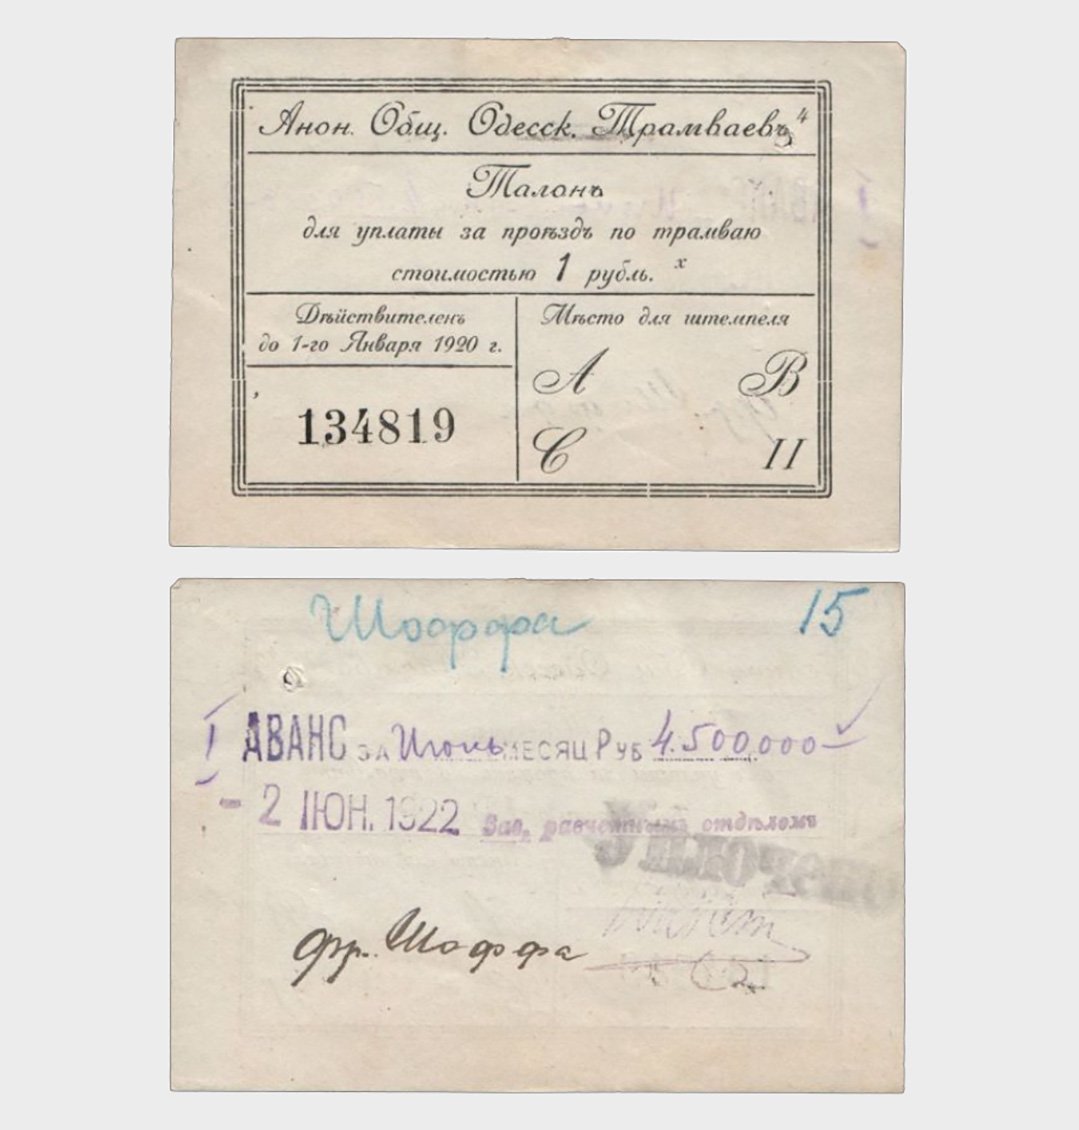 Анон. Общ. Одесск. Трамваевъ
Талонъ
для уплаты за проѣздъ по трамваю
стоимостью 1 рубль.
Дѣйствителенъ
до 1-го Января 1920 г.
134819
Мѣсто для штемпеля
А В
С II
Шоффа 15
АВАНС за Июнь МЕСЯЦ Руб 4.500.000
- 2 ІЮН. 1922 Зав. расчетнымъ отдѣломъ
фр. Шоффа